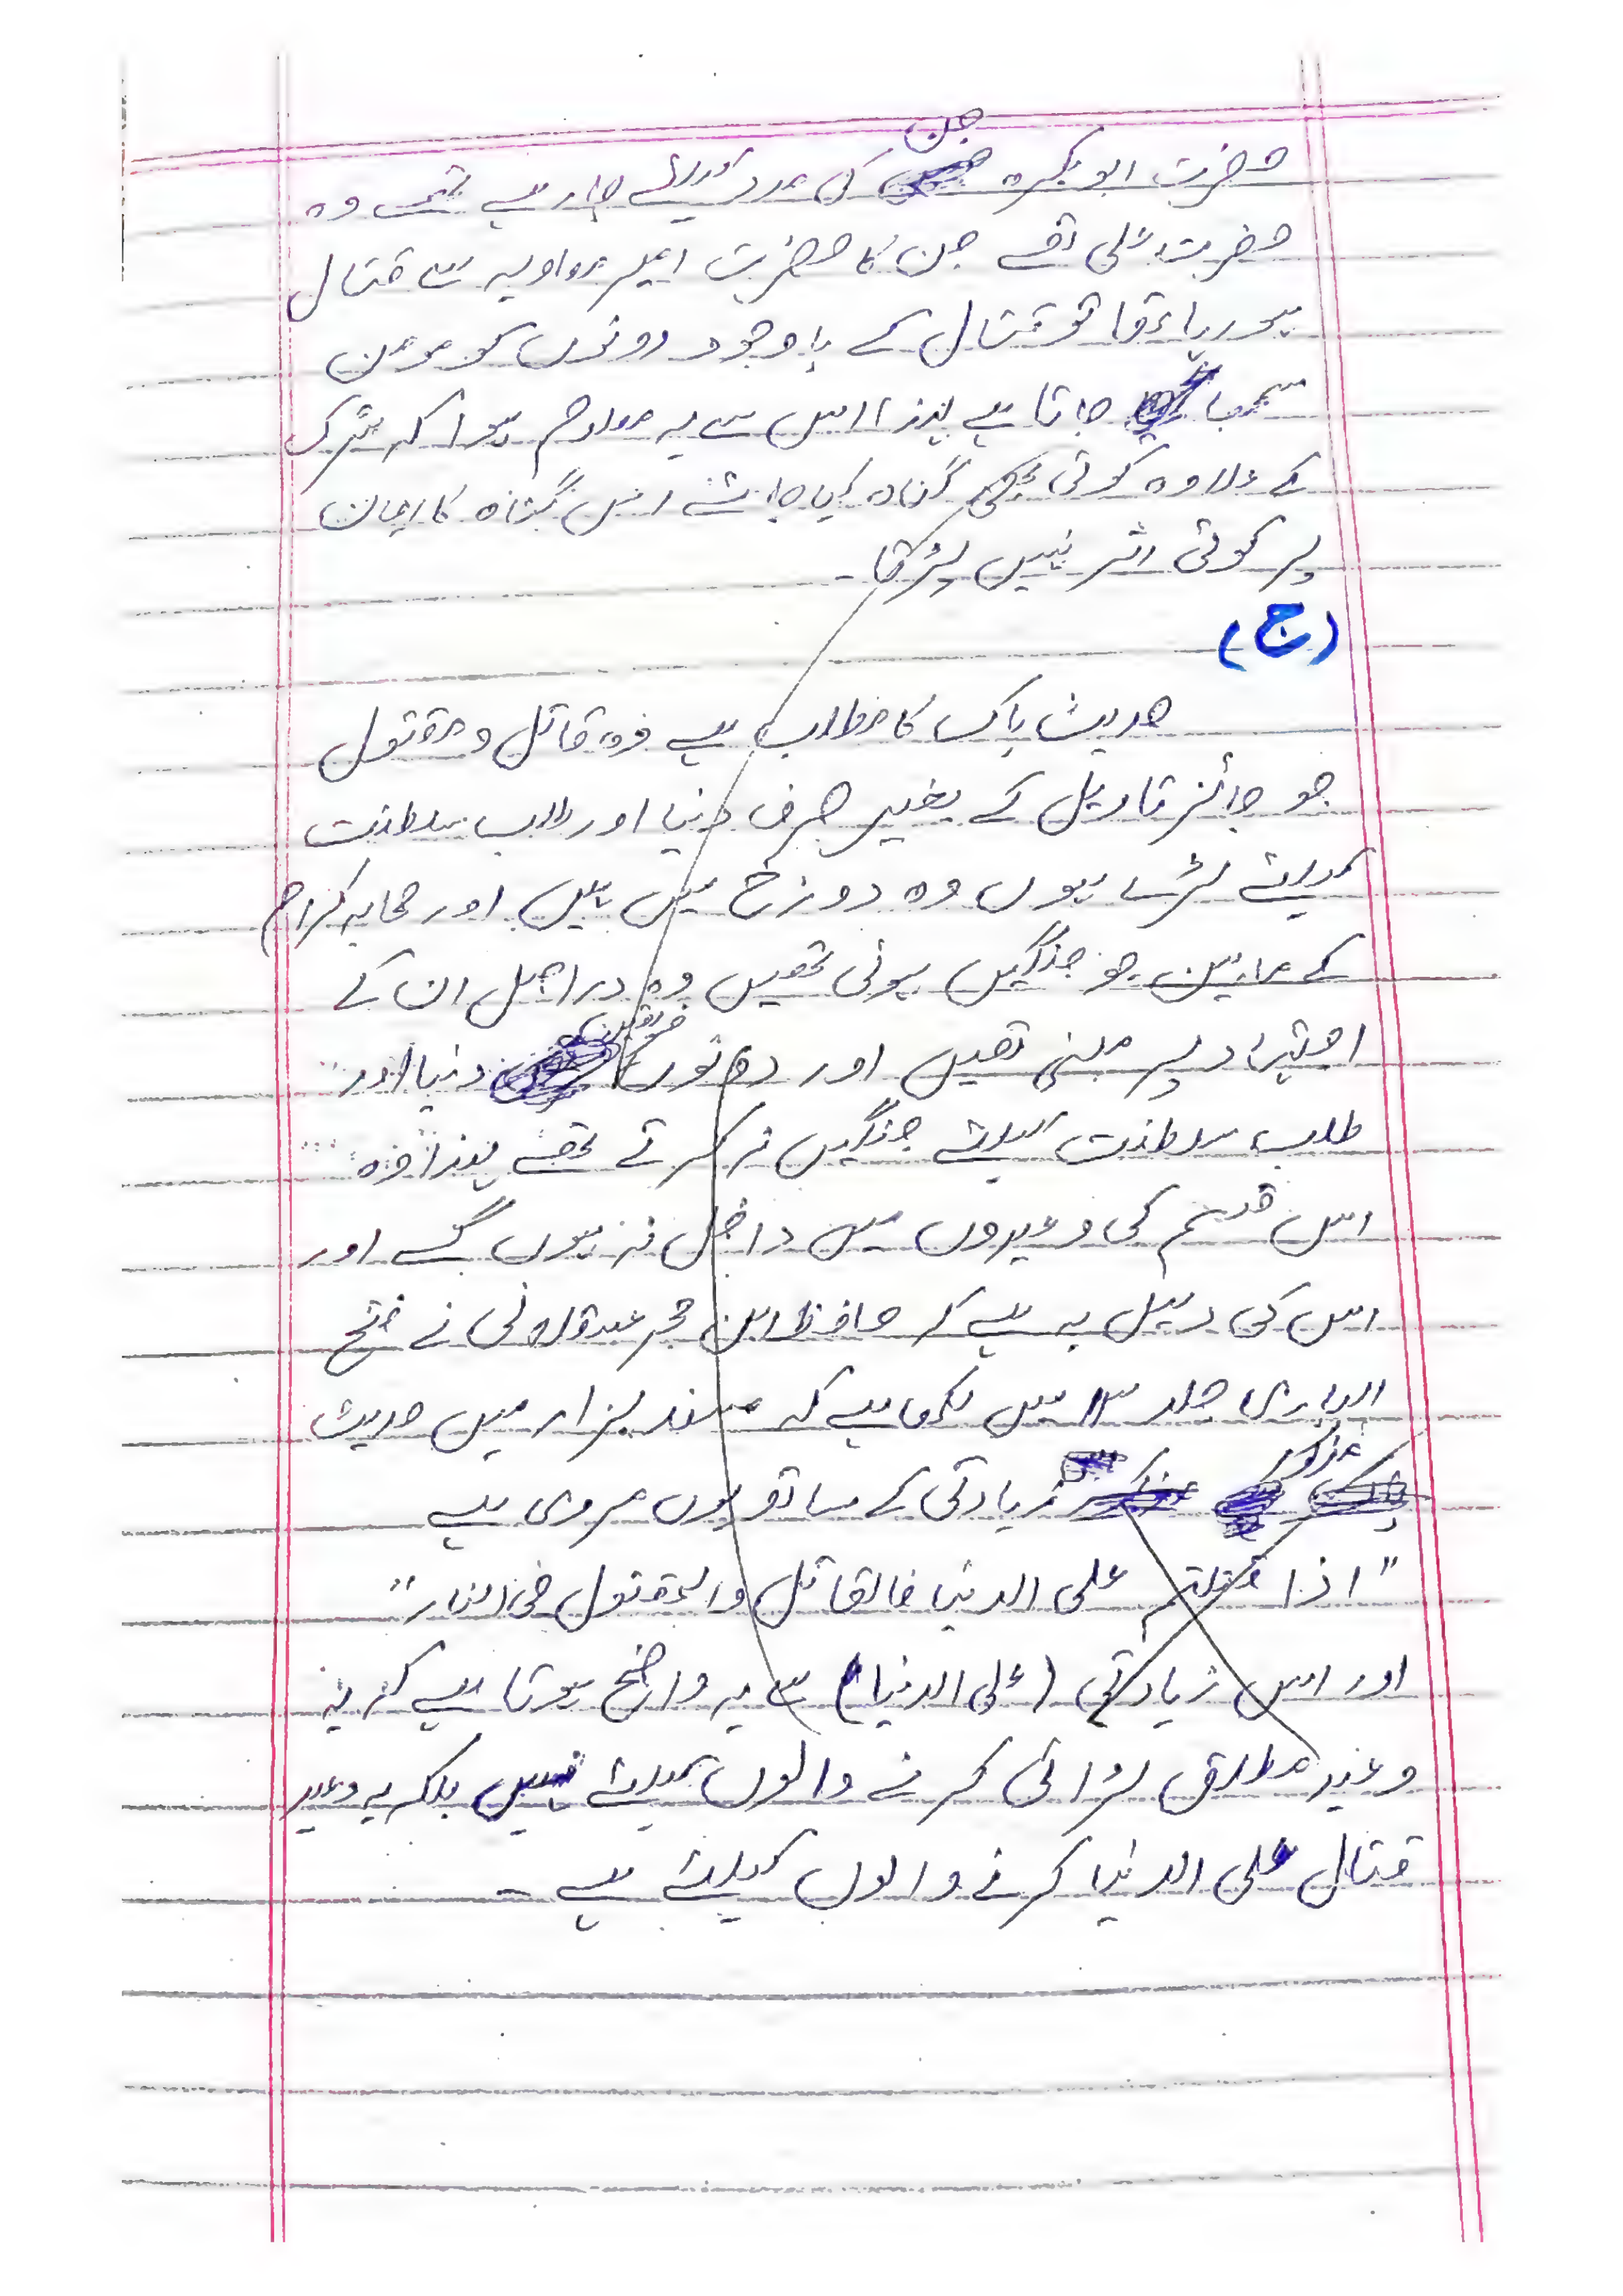 حضرت ابو بکرہ جن کی مدد کیلئے جا رہے تھے وہ
حضرت علی تھے جن کا حضرت امیر معاویہ سے قتال
ہو رہا تھا تو قتال کے باوجود دونوں کو مومن
سمجھا جاتا ہے لہذا اس سے یہ معلوم ہوا کہ شرک
کے علاوہ کوئی بھی گناہ کیا جائے اس گناہ کا ایمان
پر کوئی اثر نہیں پڑتا۔
(ج)
حدیث پاک کا مطلب ہے وہ قاتل و مقتول
جو جائز تاویل کے بغیر صرف دنیا اور طلب سلطنت
کیلئے لڑے ہوں وہ دوزخ میں ہیں اور صحابہ کرام
کے مابین جو جنگیں ہوئی تھیں وہ دراصل ان کے
اجتہاد پر مبنی تھیں اور دونوں فریقین دنیا اور
طلب سلطنت کیلئے جنگیں نہ کرتے تھے لہذا وہ
اس قسم کی وعیدوں میں داخل نہ ہوں گے اور
اس کی دلیل یہ ہے کہ حافظ ابن حجر عسقلانی نے فتح
الباری جلد ۱۳ میں لکھا ہے کہ مسند بزار میں حدیث
مذکور زیادتی کے ساتھ یوں مروی ہے
"اذا قتلتم علی الدنیا فالقاتل والمقتول فی النار"
اور اس زیادتی (علی الدنیا) سے یہ واضح ہوتا ہے کہ یہ
وعید مطلق لڑائی کرنے والوں کیلئے نہیں بلکہ یہ وعید
قتال علی الدنیا کرنے والوں کیلئے ہے۔